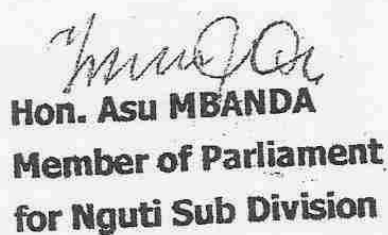 Hon. Asu MBANDA
Member of Parliament
for Nguti Sub Division